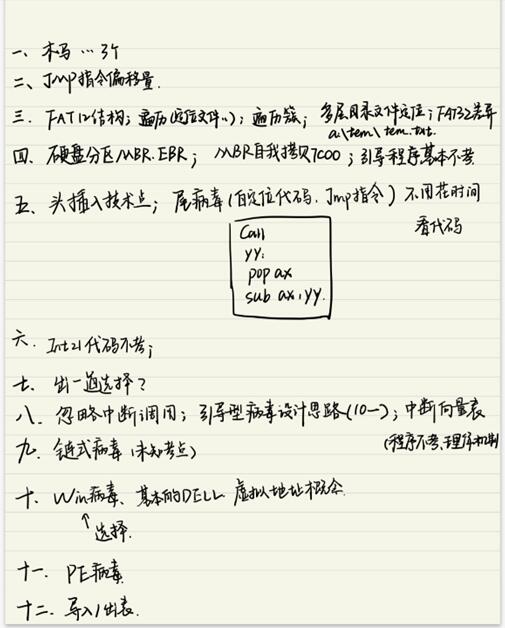 一、木马 … 3个
二、Jmp指令偏移量.
三. FAT12结构; 遍历(定位文件..); 遍历簇; 多层目录文件定位; FAT32差异
a:\tem\tem.txt.
四. 硬盘分区MBR.EBR; MBR自我拷贝7C00; 引导程序基本不考
五、头插入技术点; 尾病毒(自定位代码. Jmp指令) 不用花时间
看代码
Call
yy:
pop ax
sub ax, yy.
六. Int21代码不考;
七. 出一道选择?
八. 忽略中断调用; 引导型病毒设计思路(10一); 中断向量表
(程序不考、理解机制
九. 链式病毒(未知考点)
十. Win病毒、基本的DELL 虚拟地址概念.
↑
选择.
十一. PE病毒
十二. 导入/出表.